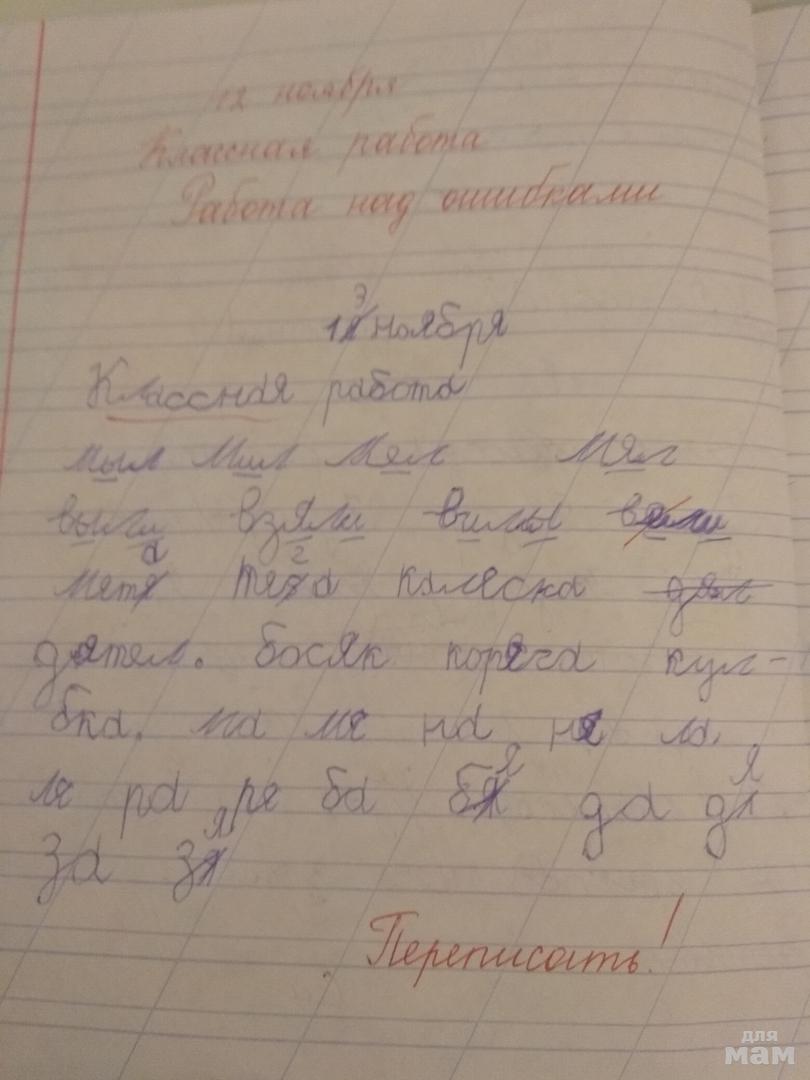 12 ноября
Классная работа
Работа над ошибками
13 ноября
Классная работа
мыл Мил Мел Мял
выли взяли вилы вяли
мята тега каляска дял
дятел. босяк коряга кул-
бка. ма мя на ня ла
ля ра ря ба бя да дя
за зя
Переписать!
для
мам